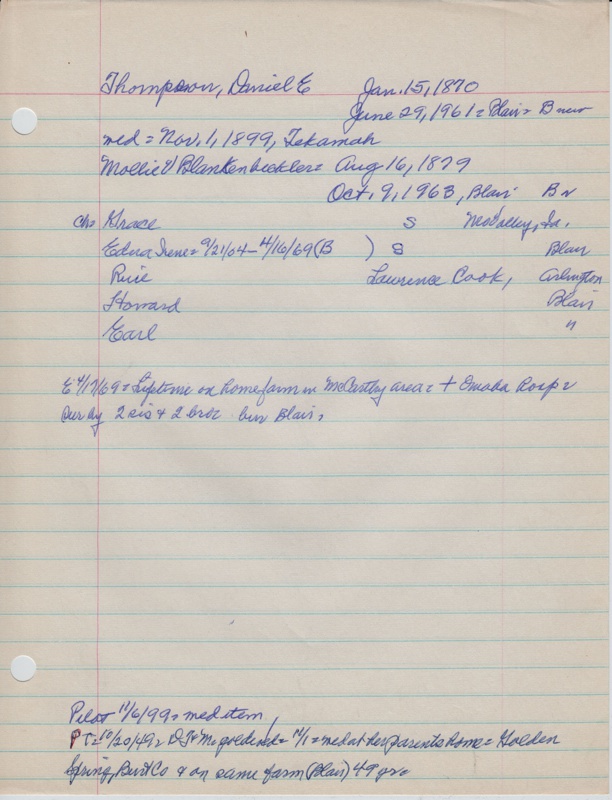 Thompson, Daniel E Jan. 15, 1870
June 29, 1961 = Blair = B
med = Nov. 1, 1899, Tekamah
Mollie V Blankenbeckler = Aug 16, 1879
Oct. 9, 1963, Blair B
ch = Grace S Mo Valley, Ia.
Edna Irene = 9/21/04 – 4/16/69 (B ) S Blair
Lawrence Cook, Arlington
Howard Blair
Earl "
E 4/17/69 = Lifetime on home farm in McCarthy area = + Omaha Hosp =
Sur by 2 sis + 2 bros bur Blair,
Pilot 11/6/99 = med item,
PT = 10/20/49 = D.T + M gold wed = 11/1 = med at her parents home = Golden
Spring, Burt Co + on same farm (Blair) 49 yrs =